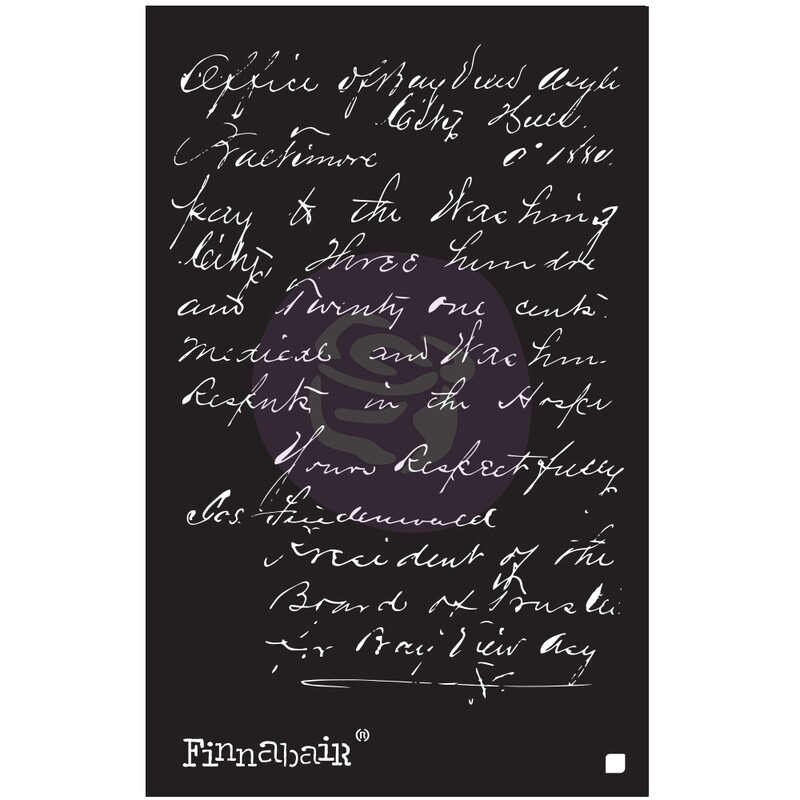 Office of Bay View Asyl
City Hall.
Baltimore 1880.
Pay to the Washing
City, Three hundre
and Twenty one cents.
Medical and Washin
in the Hospi
Yours Respectfully
Jos. Friedenwald
President of the
Board of Trustee
for Bay View Asy
Finnabair®